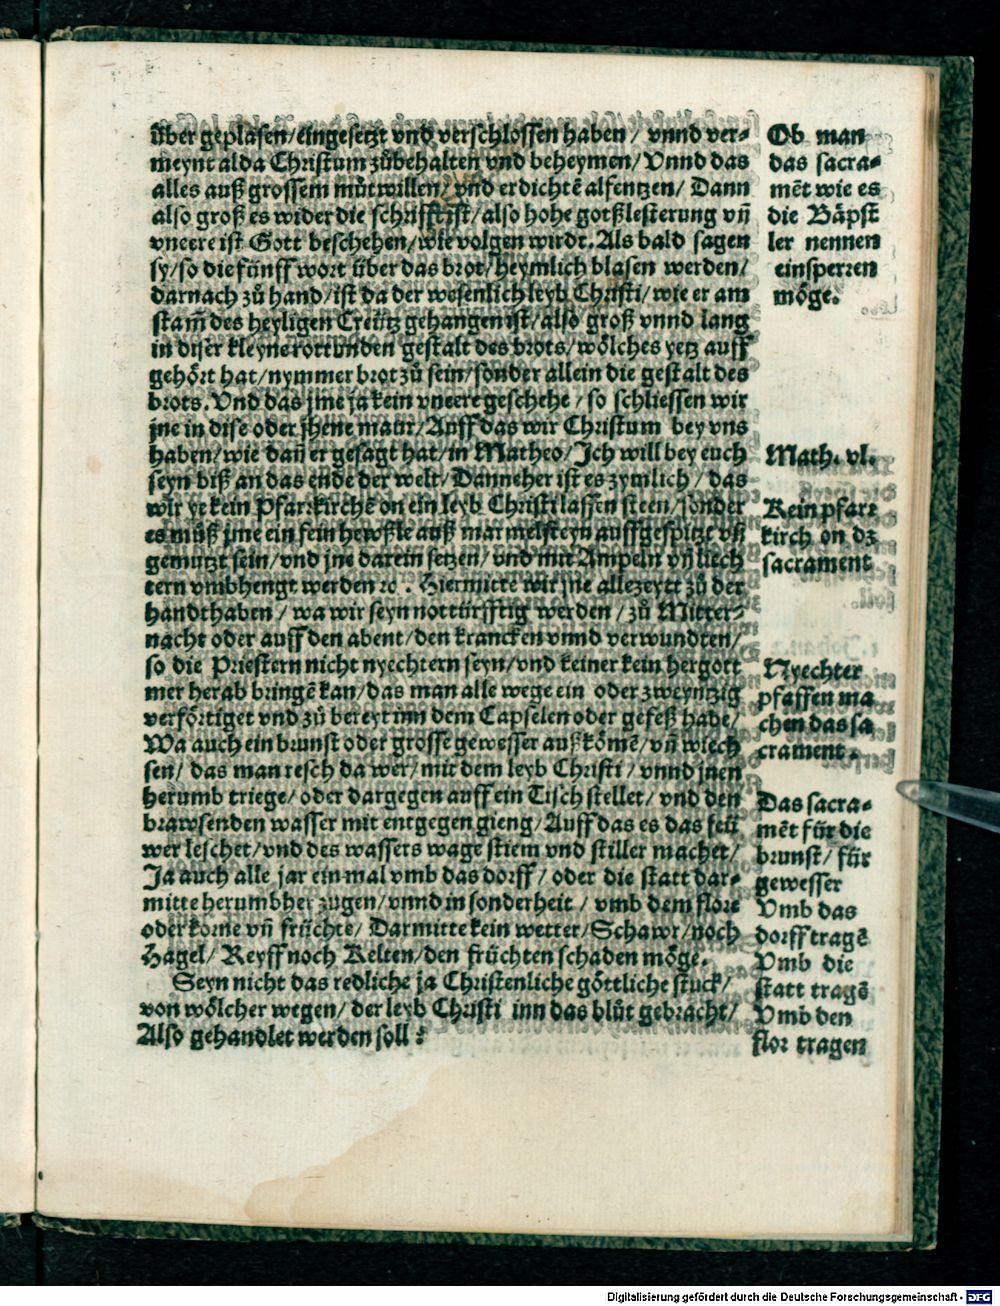 über geplasen/eingesetzt vnd verschlossen haben / vnnd ver-
meynt alda Christum zůbehalten vnd beheymen/Vnnd das
alles auß grossem můtwillen/vnd erdichtē alfentzen/ Dann
also groß es wider die schrifft ist/also hohe gotßlesterung vn̄
vneere ist Gott beschehen/wie volgen wirdt. Als bald sagen
sy/so die fünff wort über das brot/heymlich blasen werden/
darnach zů hand/ist da der wesenlich leyb Christi/wie er am
stam̄ des heyligen Creütz gehangen ist/also groß vnnd lang
in diser kleyne rottunden gestalt des brots/wölches yetz auff
gehört hat/nymmer brot zů sein/sonder allein die gestalt des
brots. Vnd das jme ja kein vneere geschehe / so schliessen wir
jne in dise oder jhene maur/Auff das wir Christum bey vns
haben/wie dan̄ er gesagt hat/in Matheo/Ich will bey euch
seyn biß an das ende der welt/Danneher ist es zymlich / das
wir ye kein Pfarrkirchē on ein leyb Christi lassen steen/sonder
es můß jme ein fein hewßle auß marmelsteyn auffgespitzt vn̄
gemutzt sein/vnd jne darein setzen/vnd mit Ampeln vn̄ liech
tern vmbhengt werden ꝛc. Hiermitte wir jne allezeytt zů der
handt haben / wa wir seyn nottürfftig werden / zů Mitter-
nacht oder auff den abent/den krancken vnnd verwundten/
so die Priestern nicht nyechtern seyn/vnd keiner kein hergott
mer herab bringē kan/das man alle wege ein oder zweyntzig
verförtiget vnd zů bereyt inn dem Capselen oder gefeß habe/
Wa auch ein brunst oder grosse gewesser auß kömē/vn̄ wiech
sen/ das man resch da wer/mit dem leyb Christi / vnnd jnen
herumb triege/oder dargegen auff ein Tisch stellet/ vnd den
brawsenden wasser mit entgegen gieng/Auff das es das feü
wer leschet/vnd des wassers wage stiem vnd stiller machet/
Ja auch alle jar ein mal vmb das dorff / oder die statt dar-
mitte herumbher zugen/vnnd in sonderheit / vmb dem flore
oder korne vn̄ früchte/ Darmitte kein wetter/Schawr/noch
Hagel/ Reyff noch Kelten/den früchten schaden möge.
Seyn nicht das redliche ja Christenliche göttliche stuck/
von wölcher wegen/ der leyb Christi inn das blůt gebracht/
Also gehandlet werden soll :
Ob man
das sacra-
mēt wie es
die Bäpst
ler nennen
einsperren
möge.
Math. vl.
Kein pfarr
kirch on dz
sacrament
Nyechter
pfaffen ma
chen das sa
crament.
Das sacra-
mēt für die
brunst/ für
gewesser
Vmb das
dorff tragē
Vmb die
statt tragē
Vmb den
flor tragen
Digitalisierung gefördert durch die Deutsche Forschungsgemeinschaft - DFG